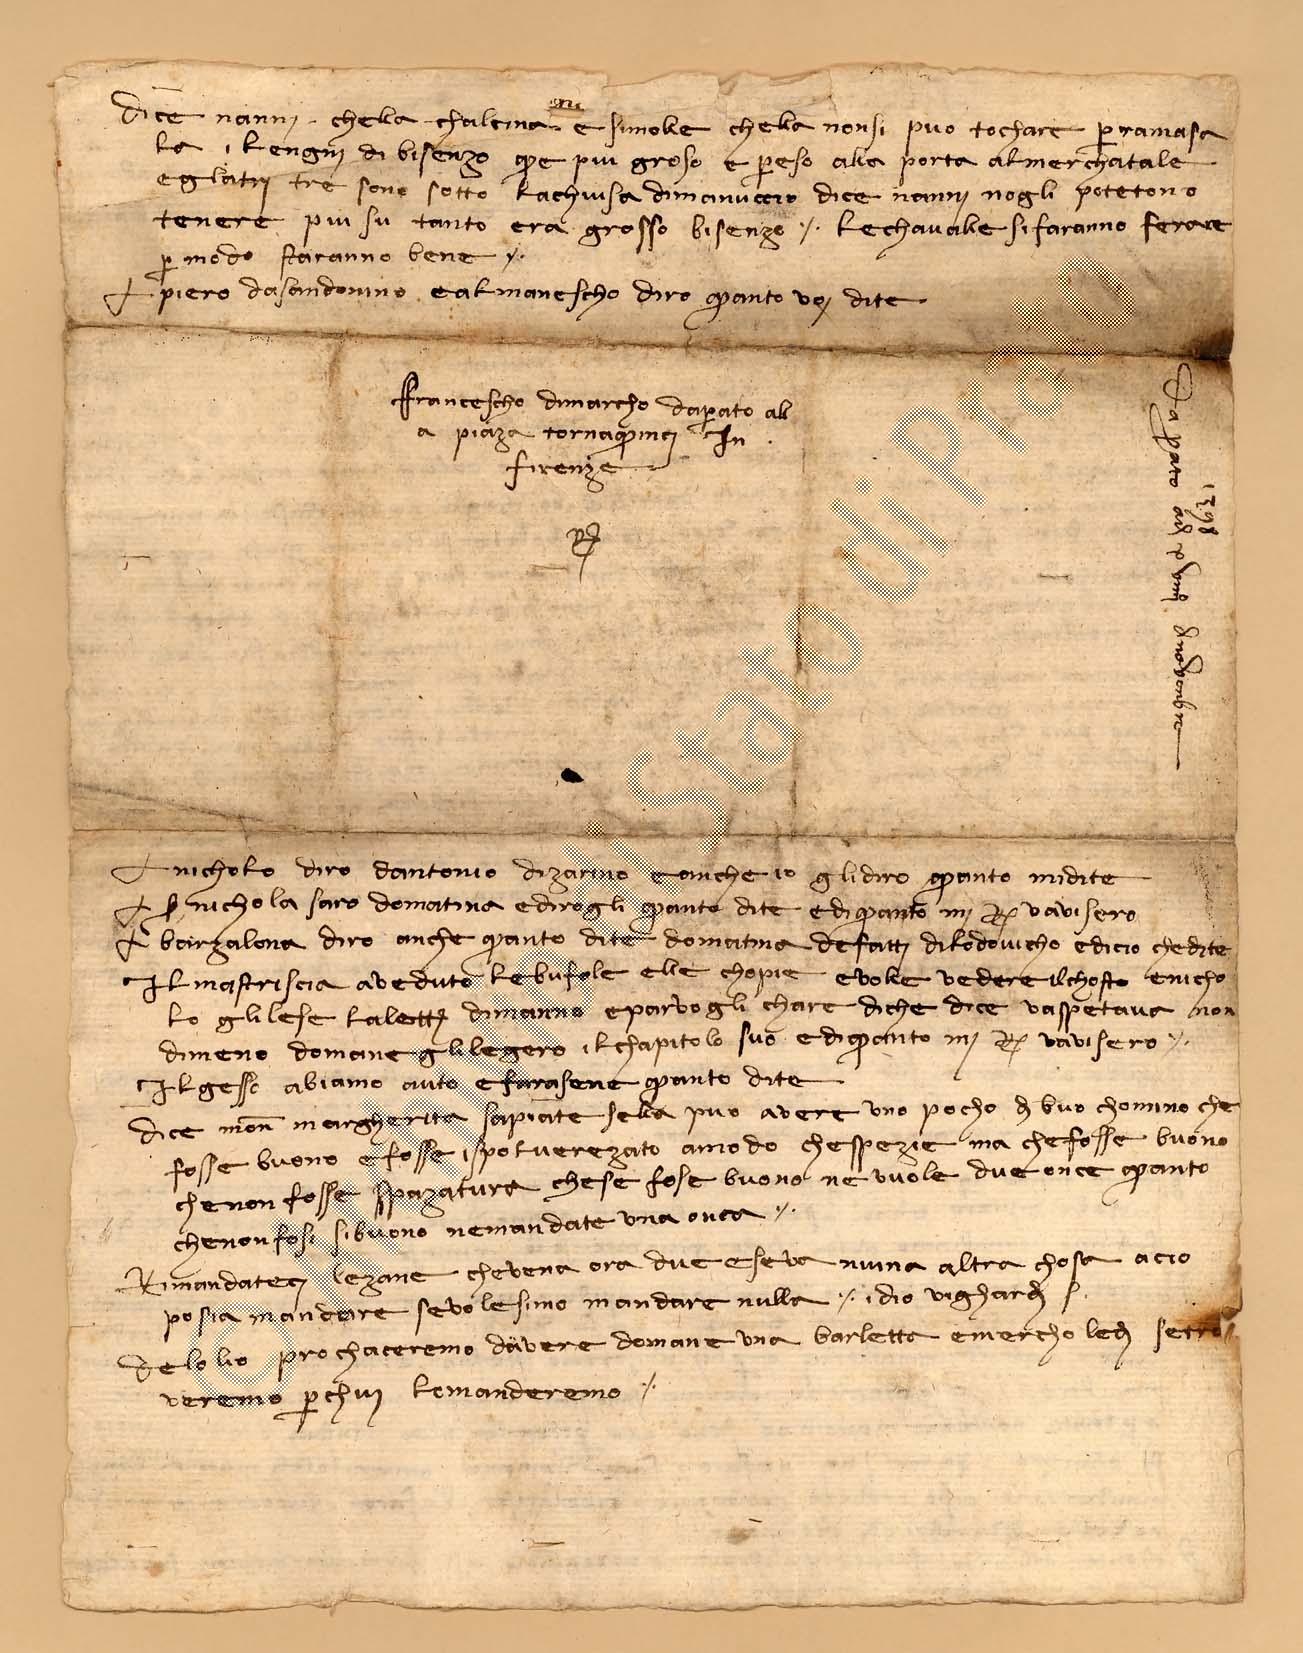 Dice nanni chella chalcina e simolle chella nonsi puo tochare per ramasa
lla i lengni di bisenzo che piu groso e preso alla porta al merchatale
egl altri tre sono sotto la chiusa dimanuccio dice nanni nogli poteton o
tenere piu su tanto era grosso bisenzo le chavalle si faranno ferare
per modo staranno bene
A piero dasandonino e al manescho diro quanto voi dite
Francescho dimarcho daprato all
a piaza tornaquinci In
firenze
Da prato a dì di novenbre
1398
A nicholo diro dantonio dizarino e anche io gli diro quanto midite
A nichola saro domatina e dirogli quanto dite e di quanto mi vavisero
A barzalona diro anche quanto dite domatina de fatti dilodovicho e dicio chedite
Il mastriscia a veduto le bufole elle chopie e volle vedere il chosto e nicho
lo gli lese la letti dimanno e parvogli chare diche dice vaspetava non
dimeno domane gli legero il chapitolo suo e di quanto mi vavisero
Il gesso abiamo auto e farasene quanto dite
Dice mon margherita sapiate sella puo avere uno pocho di buo chomino che
fosse buono e fosse ispolverezato amodo chespezie ma che fosse buono
chenon fosse spazatura chese fose buono ne vuole due once quanto
chenon fosi si buono nemandate una onca
Rimandateci le zane chevena ora due eseva niuna altra chosa acio
posia mandare se volesimo mandare nulla idio vi ghardi
Delolio prochaceremo davere domane una barletta e mercholedi setro
veremo per chui lo manderemo